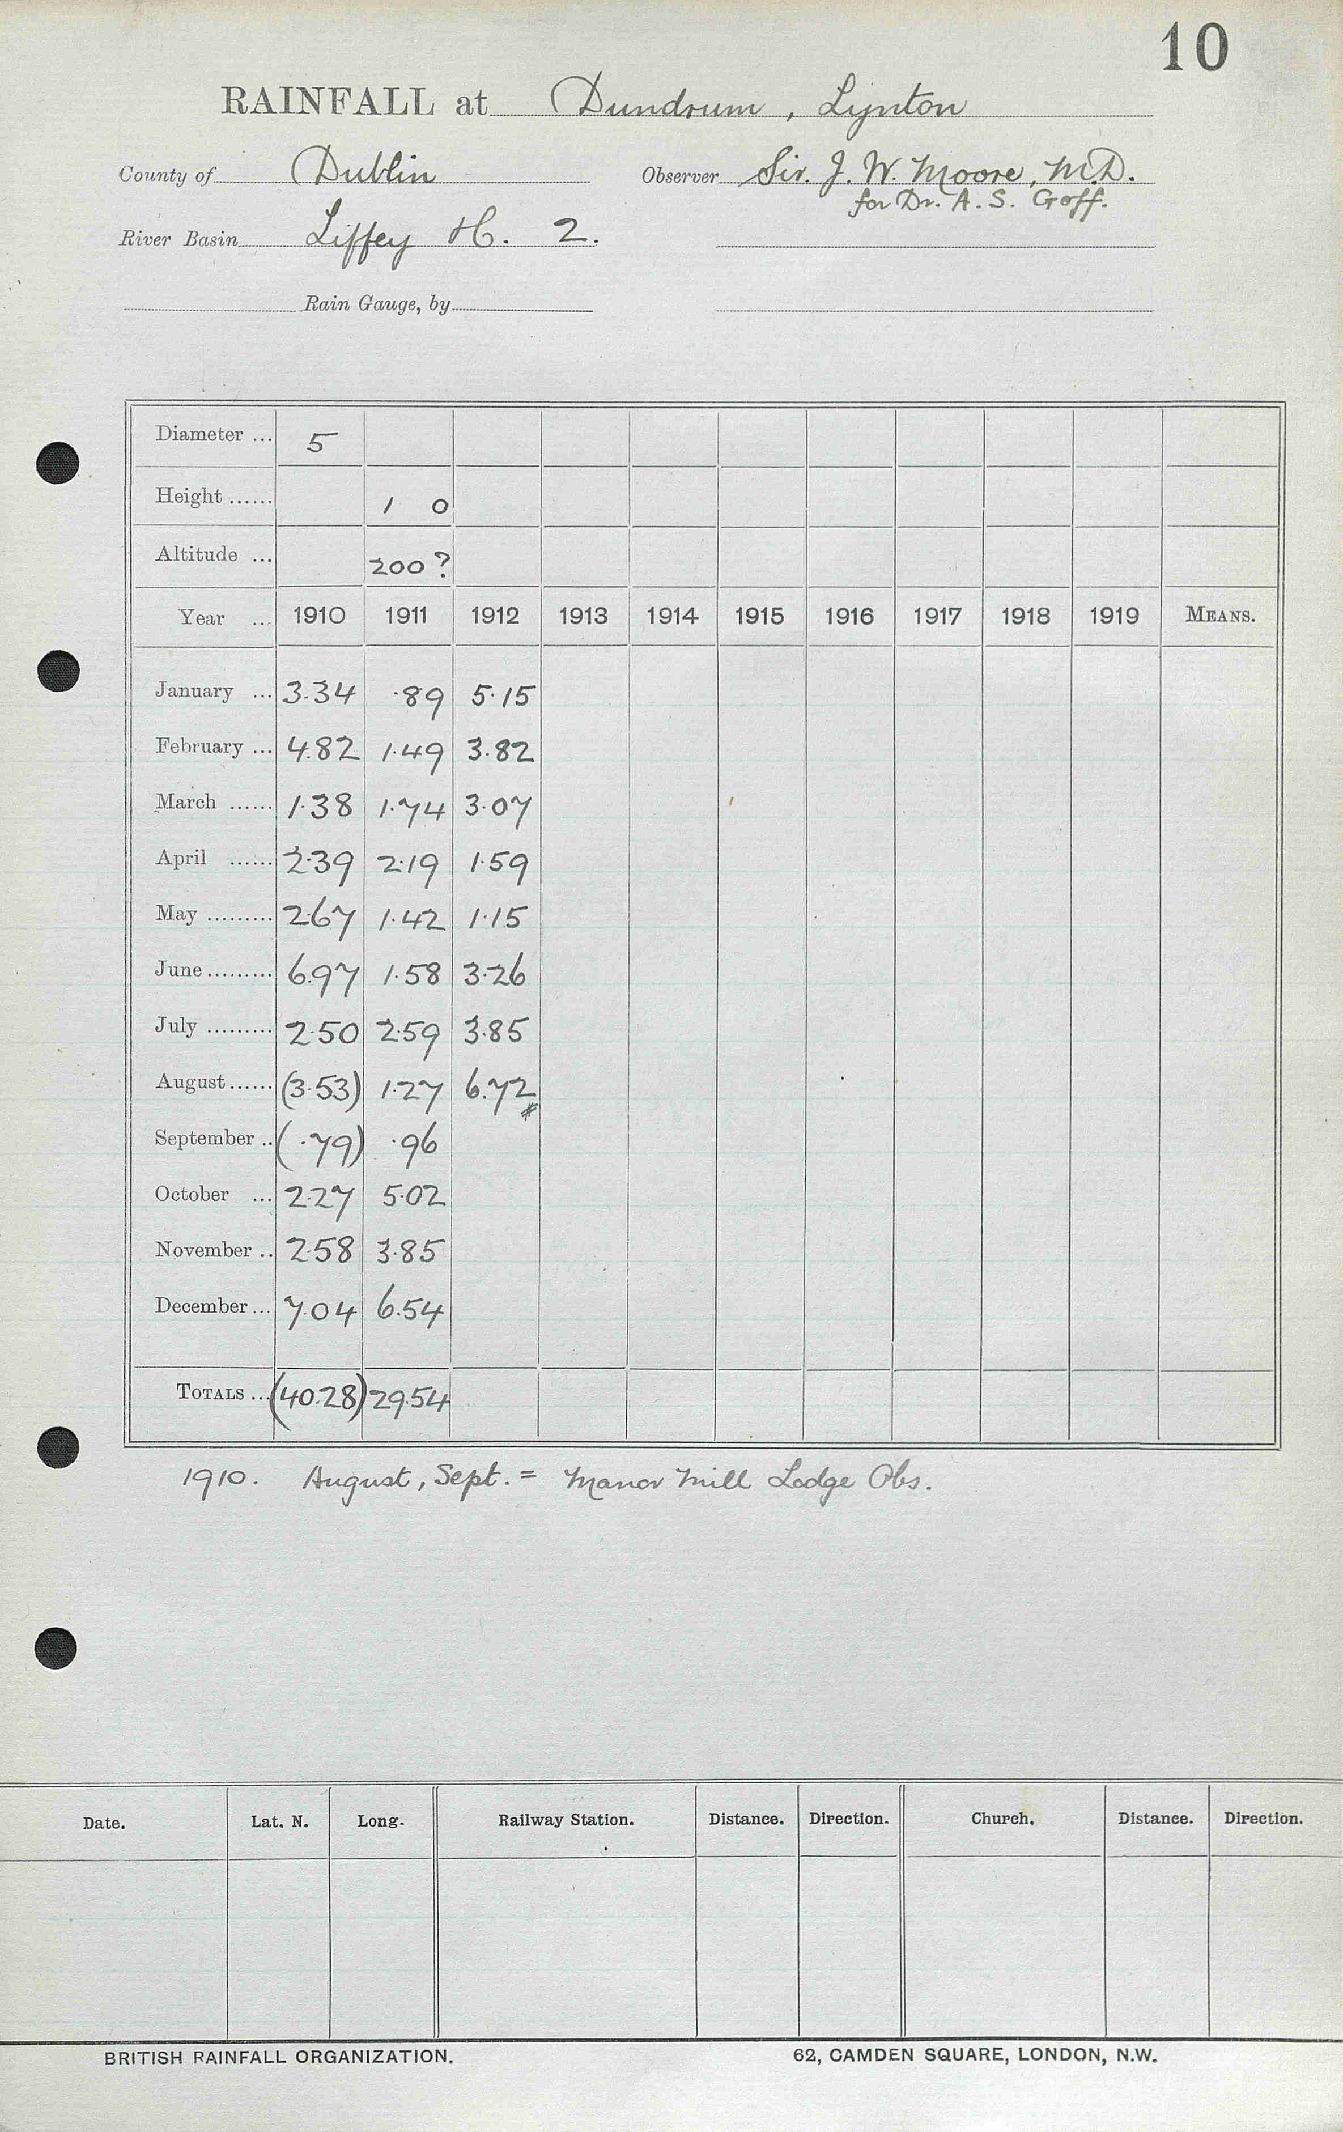 10
RAINFALL at Dundrum, Lynton
County of Dublin Observer Sir. J. W. Moore, M.D.
for Dr. A. S. Goff.
River Basin Liffey H. 2.
Rain Gauge, by
Diameter ... 5
Height ...... 1 0
Altitude ... 200?
Year ... 1910 1911 1912 1913 1914 1915 1916 1917 1918 1919 MEANS.
January ... 3.34 .89 5.15
February ... 4.82 1.49 3.82
March ...... 1.38 1.74 3.07
April ...... 2.39 2.19 1.59
May ......... 2.67 1.42 1.15
June ......... 6.97 1.58 3.26
July ......... 2.50 2.59 3.85
August ...... (3.53) 1.27 6.72
September .. (.79) .96
October ... 2.27 5.02
November .. 2.58 3.85
December ... 7.04 6.54
TOTALS ... (40.28) 29.54
1910. August, Sept. = Manor Mill Lodge Obs.
Date. Lat. N. Long. Railway Station. Distance. Direction. Church. Distance. Direction.
BRITISH RAINFALL ORGANIZATION. 62, CAMDEN SQUARE, LONDON, N.W.